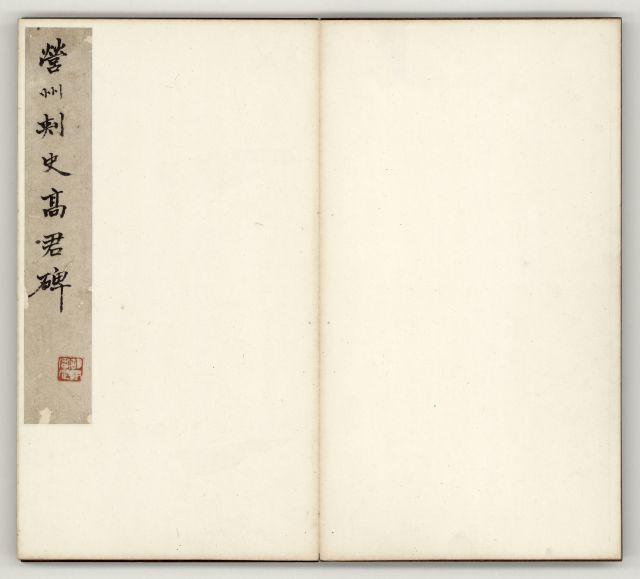 營州刺史高君碑